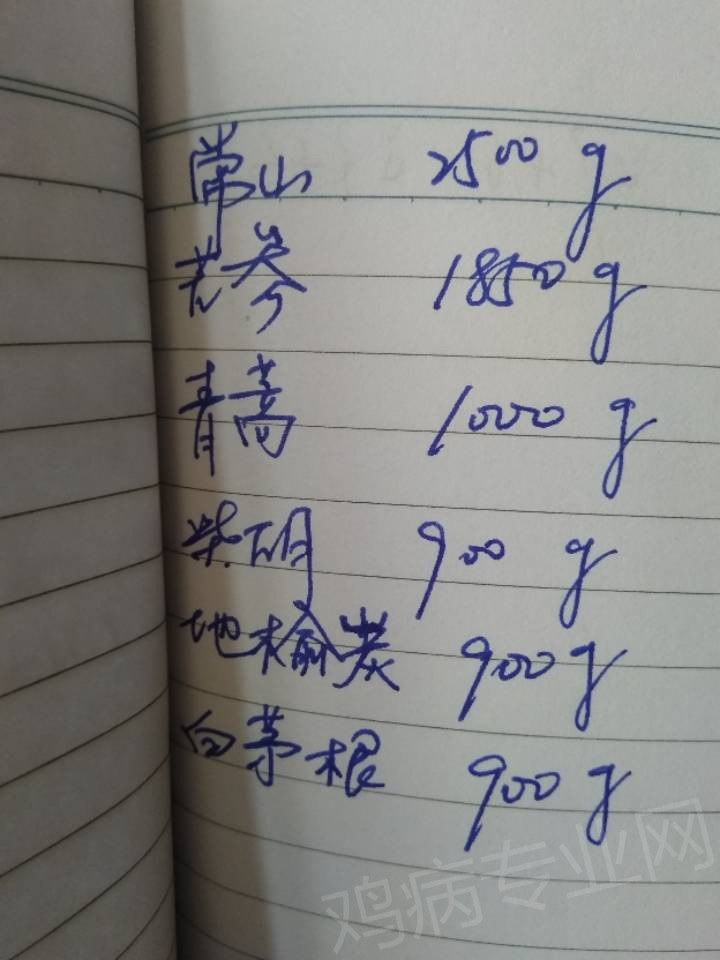 常山 2500 g
苦参 1850 g
青蒿 1000 g
柴胡 900 g
地榆炭 900 g
白茅根 900 g
鸡病专业网